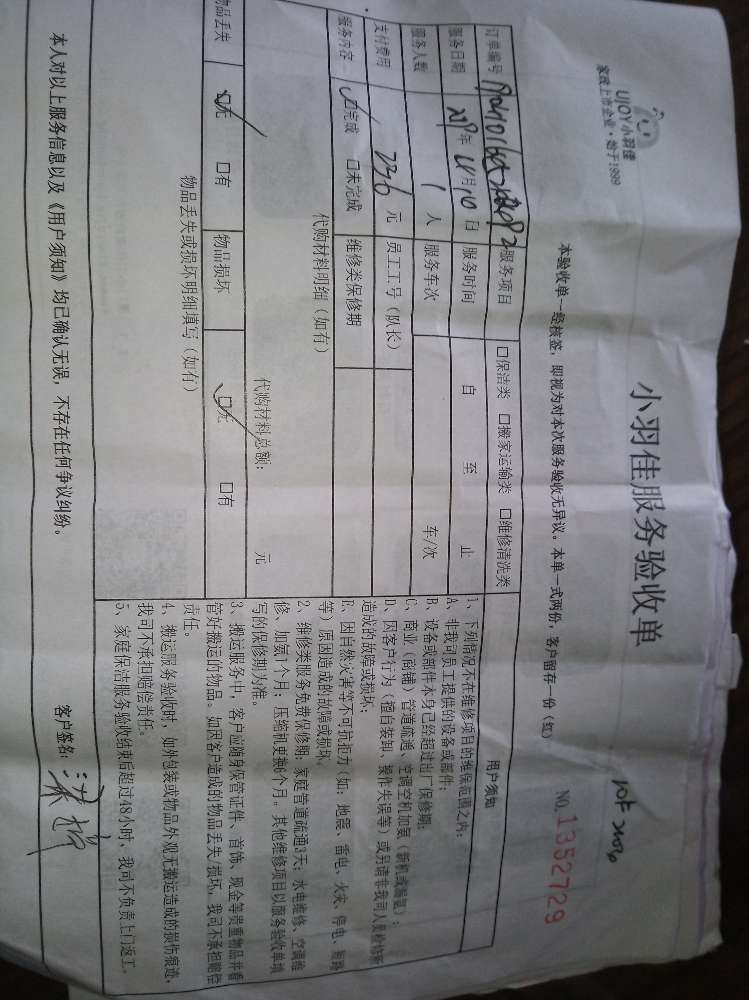 UJOY小羽佳
家政上市企业·始于1999
小羽佳服务验收单
本验收单一经核签，即视为对本次服务验收无异议。本单一式两份，客户留存一份（红）
NO.1352729
订单编号
服务项目 □保洁类 □搬家运输类 □维修清洗类
服务日期 年 月10日 服务时间 自 至 止
服务人数 1 人 服务车次 车/次
支付费用 236 元 员工工号（队长）
服务内容 □完成 □未完成 维修类保修期
代购材料明细（如有）
代购材料总额： 元
物品丢失 □无 □有 物品损坏 □无 □有
物品丢失或损坏明细填写（如有）
用户须知
1、下列情况不在维修项目的维保范围之内：
A、非我司员工提供的设备或部件；
B、设备或部件本身已经超过出厂保修期；
C、商业（商铺）管道疏通、空调空机加氨（新机或漏氨）；
D、因客户行为（擅自装卸、操作失误等）或另请非我司人员检修所
造成的故障或损坏；
E、因自然灾害等不可抗拒力（如：地震、雷电、火灾、停电、短路
等）原因造成的故障或损坏。
2、维修类服务免费保修期：家庭管道疏通3天；水电维修、空调维
修、加氨1个月；压缩机更换6个月。其他维修项目以服务验收单填
写的保修期为准。
3、搬运服务中，客户应随身保管证件、首饰、现金等贵重物品并看
管好搬运的物品。如因客户造成的物品丢失/损坏，我司不承担赔偿
责任。
4、搬运服务验收时，如外包装或物品外观无搬运造成的损伤痕迹，
我司不承担赔偿责任。
5、家庭保洁服务验收结束后超过48小时，我司不负责上门返工。
本人对以上服务信息以及《用户须知》均已确认无误，不存在任何争议纠纷。
客户签名：